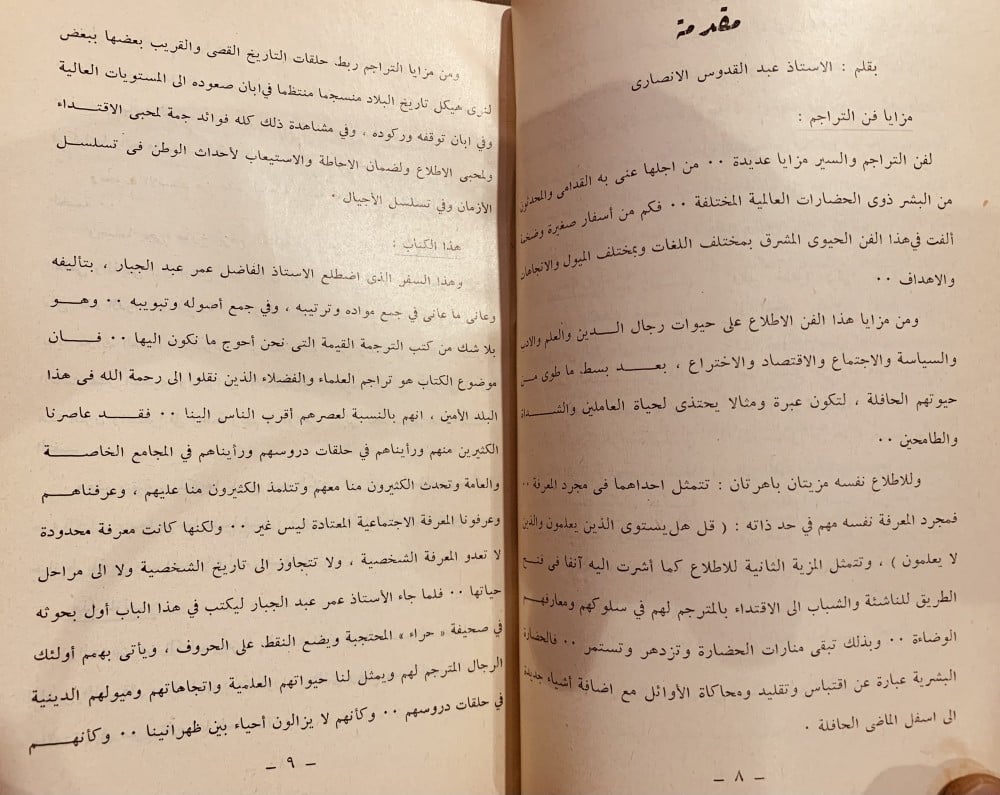 مقدمة
بقلم : الاستاذ عبد القدوس الانصارى
مزايا فن التراجم :
لفن التراجم والسير مزايا عديدة ٠٠ من اجلها عنى به القدامى والمحدثون
من البشر ذوى الحضارات العالمية المختلفة ٠٠ فكم من أسفار صغيرة وضخمة
ألفت في هذا الفن الحيوى المشرق بمختلف اللغات وبمختلف الميول والاتجاهات
والاهداف ٠٠
ومن مزايا هذا الفن الاطلاع على حيوات رجال الـدين والعلم والادب
والسياسة والاجتماع والاقتصاد والاختراع ، بعـد بسط ما طوى مـن
حيوتهم الحافلة ، لتكون عبرة ومثالا يحتذى لحياة العاملين والشـداة
والطامحين ٠٠
وللاطلاع نفسه مزيتان باهرتان : تتمثل احداهما فى مجرد المعرفة ٠٠
فمجرد المعرفة نفسه مهم في حد ذاته : ( قل هل يستوى الذين يعلمون والذين
لا يعلمون ) ، وتتمثل المزية الثانية للاطلاع كما أشرت اليه آنفا فى فتـح
الطريق للناشئة والشباب الى الاقتداء بالمترجم لهم في سلوكهم ومعارفهم
الوضاءة ٠٠ وبذلك تبقى منارات الحضارة وتزدهر وتستمر ٠٠ فالحضارة
البشرية عبارة عن اقتباس وتقليد ومحاكاة الأوائل مع اضافة أشياء جديدة
الى اسفل الماضى الحافلة ٠
ــ ٨ ــ
ومن مزايا التراجم ربط حلقات التاريخ القصى والقريب بعضها ببعض
لنرى هيكل تاريخ البلاد منسجما منتظما في ابان صعوده الى المستويات العالية
وفي ابان توقفه وركوده ، وفي مشاهدة ذلك كله فوائد جمة لمحبى الاقتـداء
ولمحبى الاطلاع ولضمان الاحاطة والاستيعاب لأحداث الوطن فى تسلسـل
الأزمان وفي تسلسل الأجيال ٠
هذا الكتاب :
وهذا السفر الذى اضطلع الاستاذ الفاضل عمر عبد الجبار ، بتأليفه
وعانى ما عانى في جمع مواده وترتيبه ، وفي جمع أصوله وتبويبه ٠٠ وهـو
بلا شك من كتب الترجمة القيمة التى نحن أحوج ما نكون اليها ٠٠ فـان
موضوع الكتاب هو تراجم العلماء والفضلاء الذين نقلوا الى رحمة الله فى هذا
البلد الأمين ، انهم بالنسبة لعصرهم أقرب الناس الينا ٠٠ فقـد عاصرنا
الكثيرين منهم ورأيناهم في حلقات دروسهم ورأيناهم في المجامع الخاصـة
والعامة وتحدث الكثيرون منا معهم وتتلمذ الكثيرون منا عليهم ، وعرفناهـم
وعرفونا المعرفة الاجتماعية المعتادة ليس غير ٠٠ ولكنها كانت معرفة محدودة
لا تعدو المعرفة الشخصية ، ولا تتجاوز الى تاريخ الشخصية ولا الى مراحل
حياتها ٠٠ فلما جاء الأستاذ عمر عبد الجبار ليكتب في هذا الباب أول بحوثه
في صحيفة « حراء » المحتجبة ويضع النقط على الحروف ، ويأتى بهمم أولئك
الرجال المترجم لهم ويمثل لنا حيواتهم العلمية واتجاهاتهم وميولهم الدينية
في حلقات دروسهم ٠٠ وكأنهم لا يزالون أحياء بين ظهرانينا ٠٠ وكأنهـم
ــ ٩ ــ